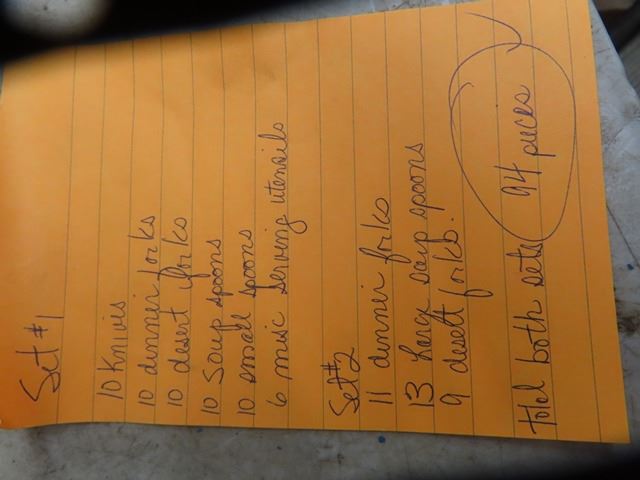 Set #1
10 Knives
10 dinner forks
10 desert forks
10 Soup spoons
10 small spoons
6 misc serving utensils
Set #2
11 dinner forks
13 large soup spoons
9 desert forks.
Total both sets 94 pieces